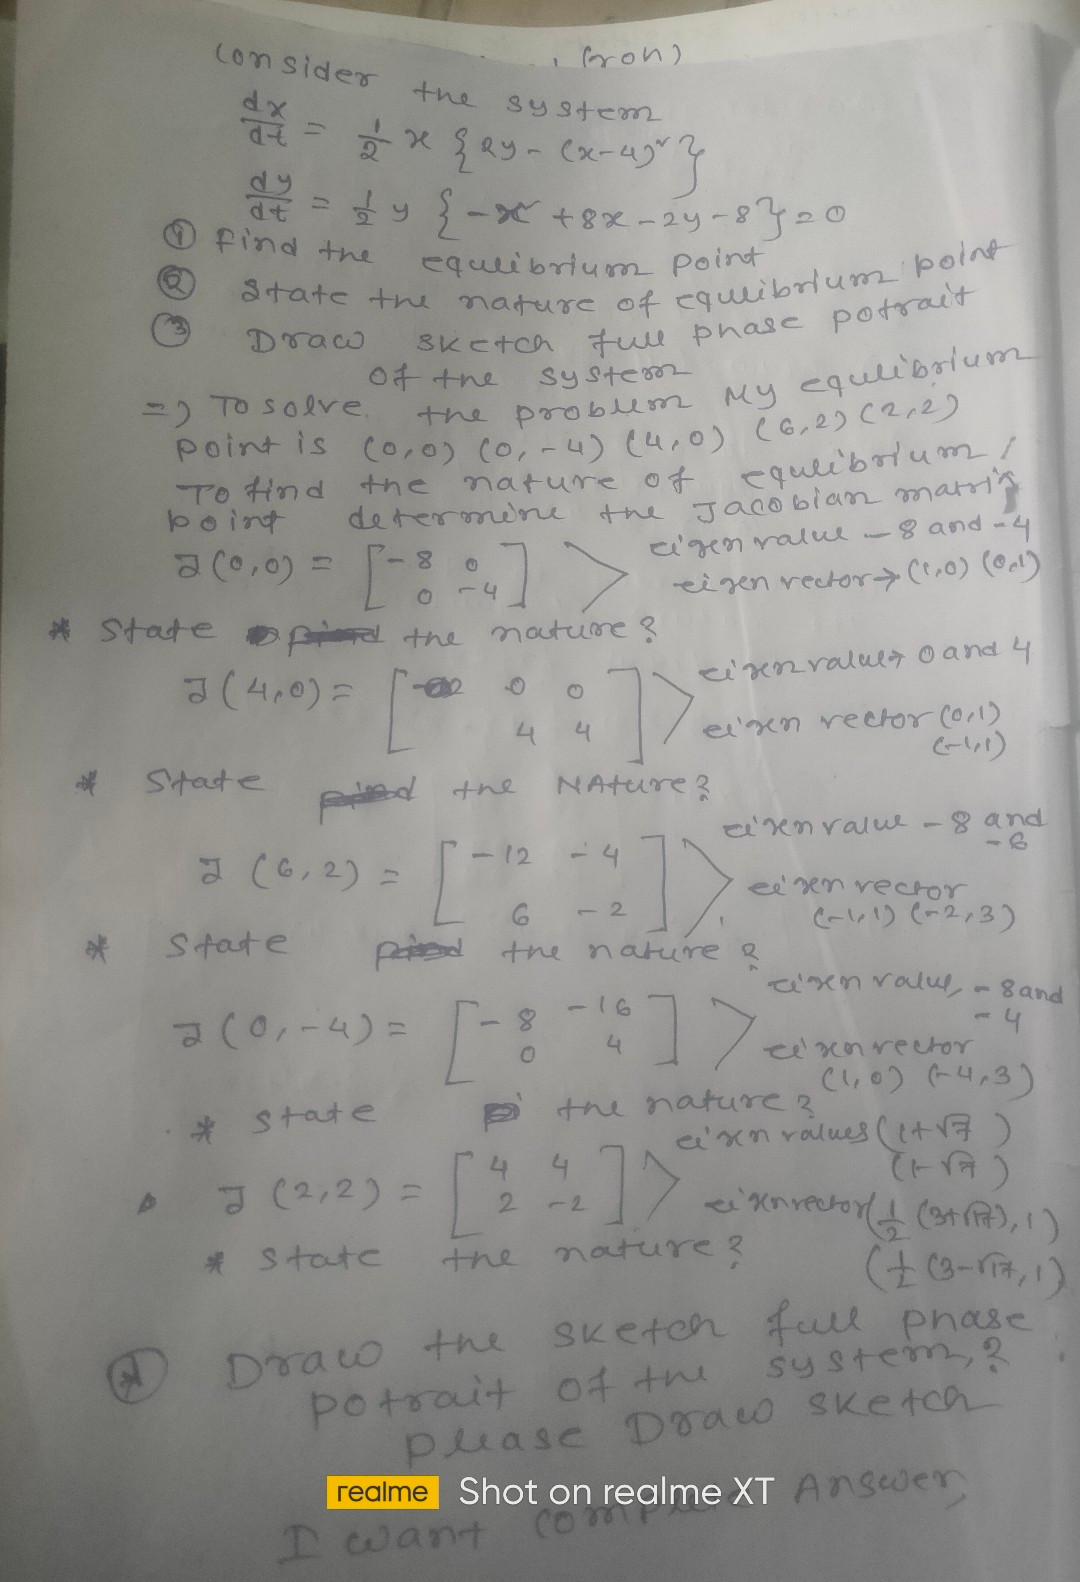 Consider the system
dx/dt = 1/2 x {2y - (x-4)²}
dy/dt = 1/2 y {-x² + 8x - 2y - 8} = 0
① find the equilibrium point
② State the nature of equilibrium point
③ Draw sketch full phase potrait
of the system
=> To solve the problem My equilibrium
point is (0,0) (0,-4) (4,0) (6,2) (2,2)
To find the nature of equilibrium
point determine the Jacobian matrix
J(0,0) = [-8 0
0 -4] > eigen value -8 and -4
eigen vector → (1,0) (0,1)
* State the nature?
J(4,0) = [0 0
4 4] > eigen value → 0 and 4
eigen vector (0,1)
(-1,1)
* State the NAture?
J(6,2) = [-12 -4
6 -2] > eigen value -8 and
-6
eigen vector
(-1,1) (-2,3)
* State the nature?
J(0,-4) = [-8 -16
0 4] > eigen value, -8 and
-4
eigen vector
(1,0) (-4,3)
* State the nature?
J(2,2) = [4 4
2 -2] > eigen values (1+√17)
(1-√17)
eigen vector (1/2 (3+√17), 1)
(1/2 (3-√17, 1)
* State the nature?
* Draw the sketch full phase
potrait of the system,?
please Draw sketch
realme Shot on realme XT
I want Answer,